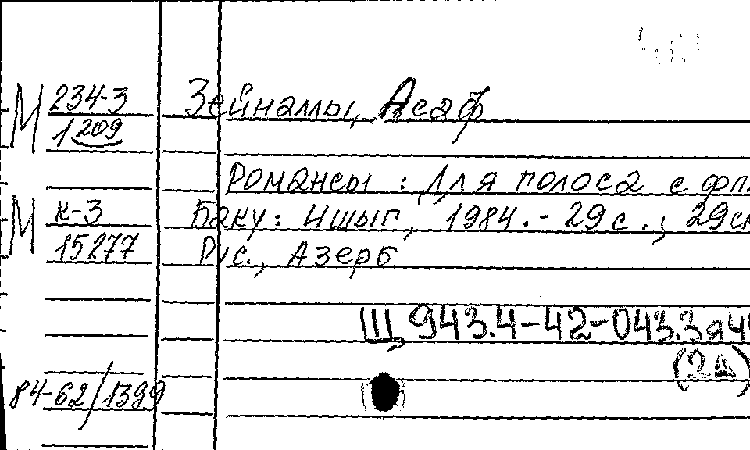 М 234-3 Зейналлы, Асаф
1209
Романсы : Для голоса с фп.
М К-3 Баку: Ишыг, 1984. - 29 с.; 29 см
15277 Рус., Азерб
Щ 943.4-42-043.3я4
(2А)
84-62/1399